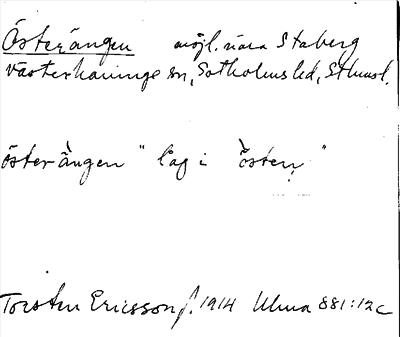 Österängen möjl. nära Staberg
Västerhaninge sn, Sotholms hd, Sthmsl.
österàngen "låg i östen"
Torsten Ericsson f. 1914 Ulma 881:12c